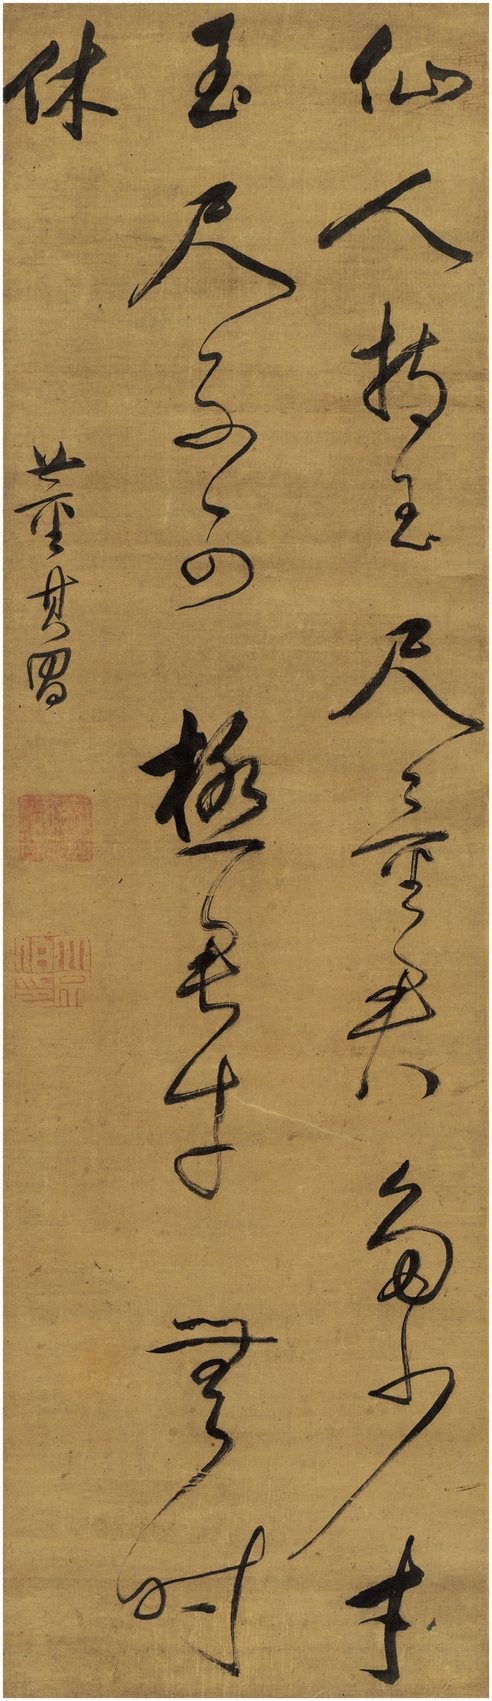 仙人持玉尺量君多少才
玉尺不可極君才無時
休
董其昌